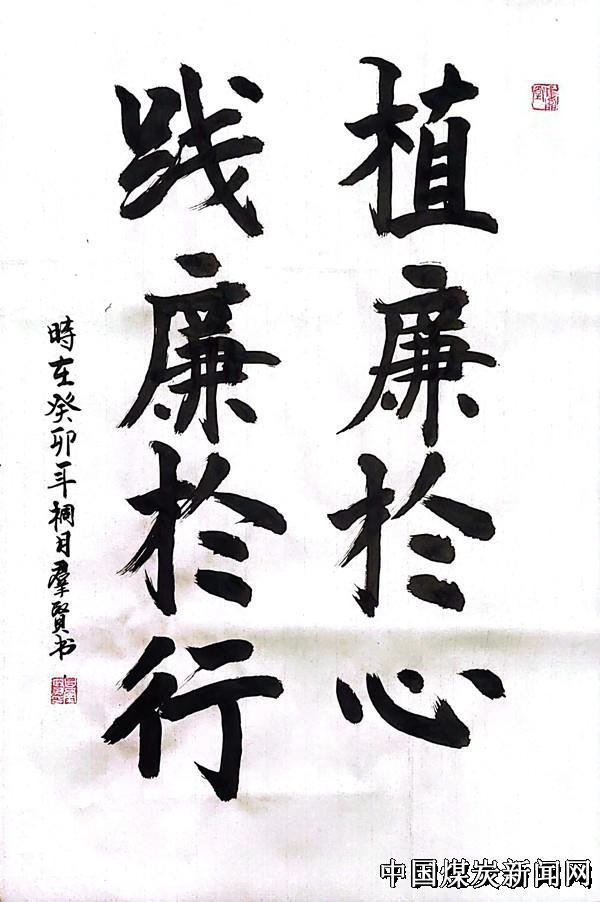 植廉於心
践廉於行
時在癸卯年桐月羣賢书
中国煤炭新闻网